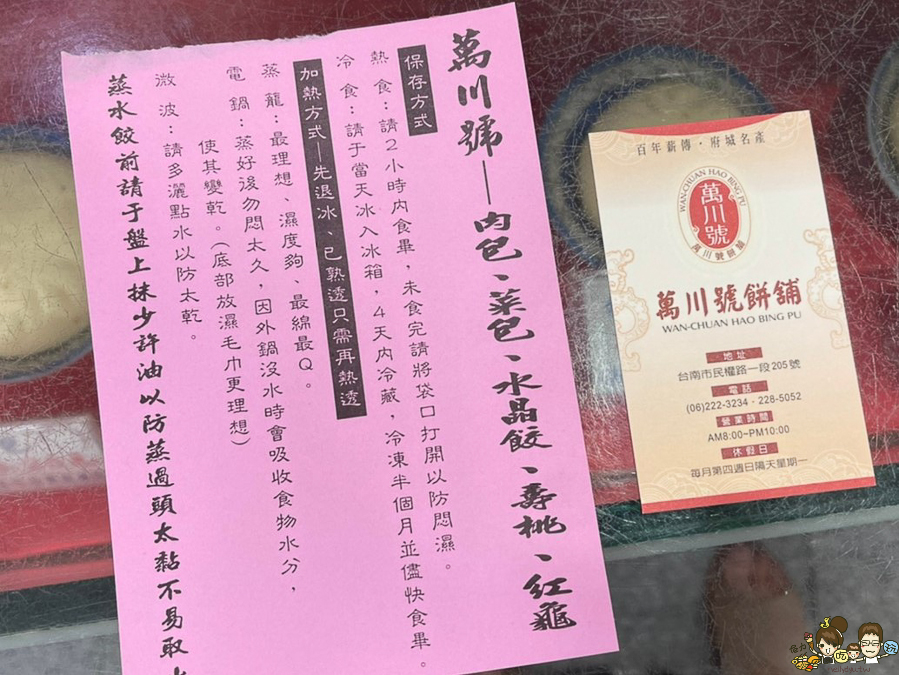 萬川號——肉包、菜包、水晶餃、壽桃、紅龜
保存方式
熱食:請2小時內食畢,未食完請將袋口打開以防悶濕。
冷食:請于當天冰入冰箱,4天內冷藏,冷凍半個月並儘快食畢。
加熱方式—先退冰、已熟透只需再熱透
蒸籠:最理想、濕度夠、最綿最Q。
電鍋:蒸好後勿悶太久,因外鍋沒水時會吸收食物水分,
使其變乾。(底部放濕毛巾更理想)
微波:請多灑點水以防太乾。
蒸水餃前請于盤上抹少許油以防蒸過頭太黏不易取
百年薪傳・府城名產
WAN-CHUAN HAO BING PU
萬川號
萬川號餅舖
萬川號餅舖
WAN-CHUAN HAO BING PU
地址
台南市民權路一段205號
電話
(06)222-3234・228-5052
營業時間
AM8:00~PM10:00
休假日
每月第四週日隔天星期一